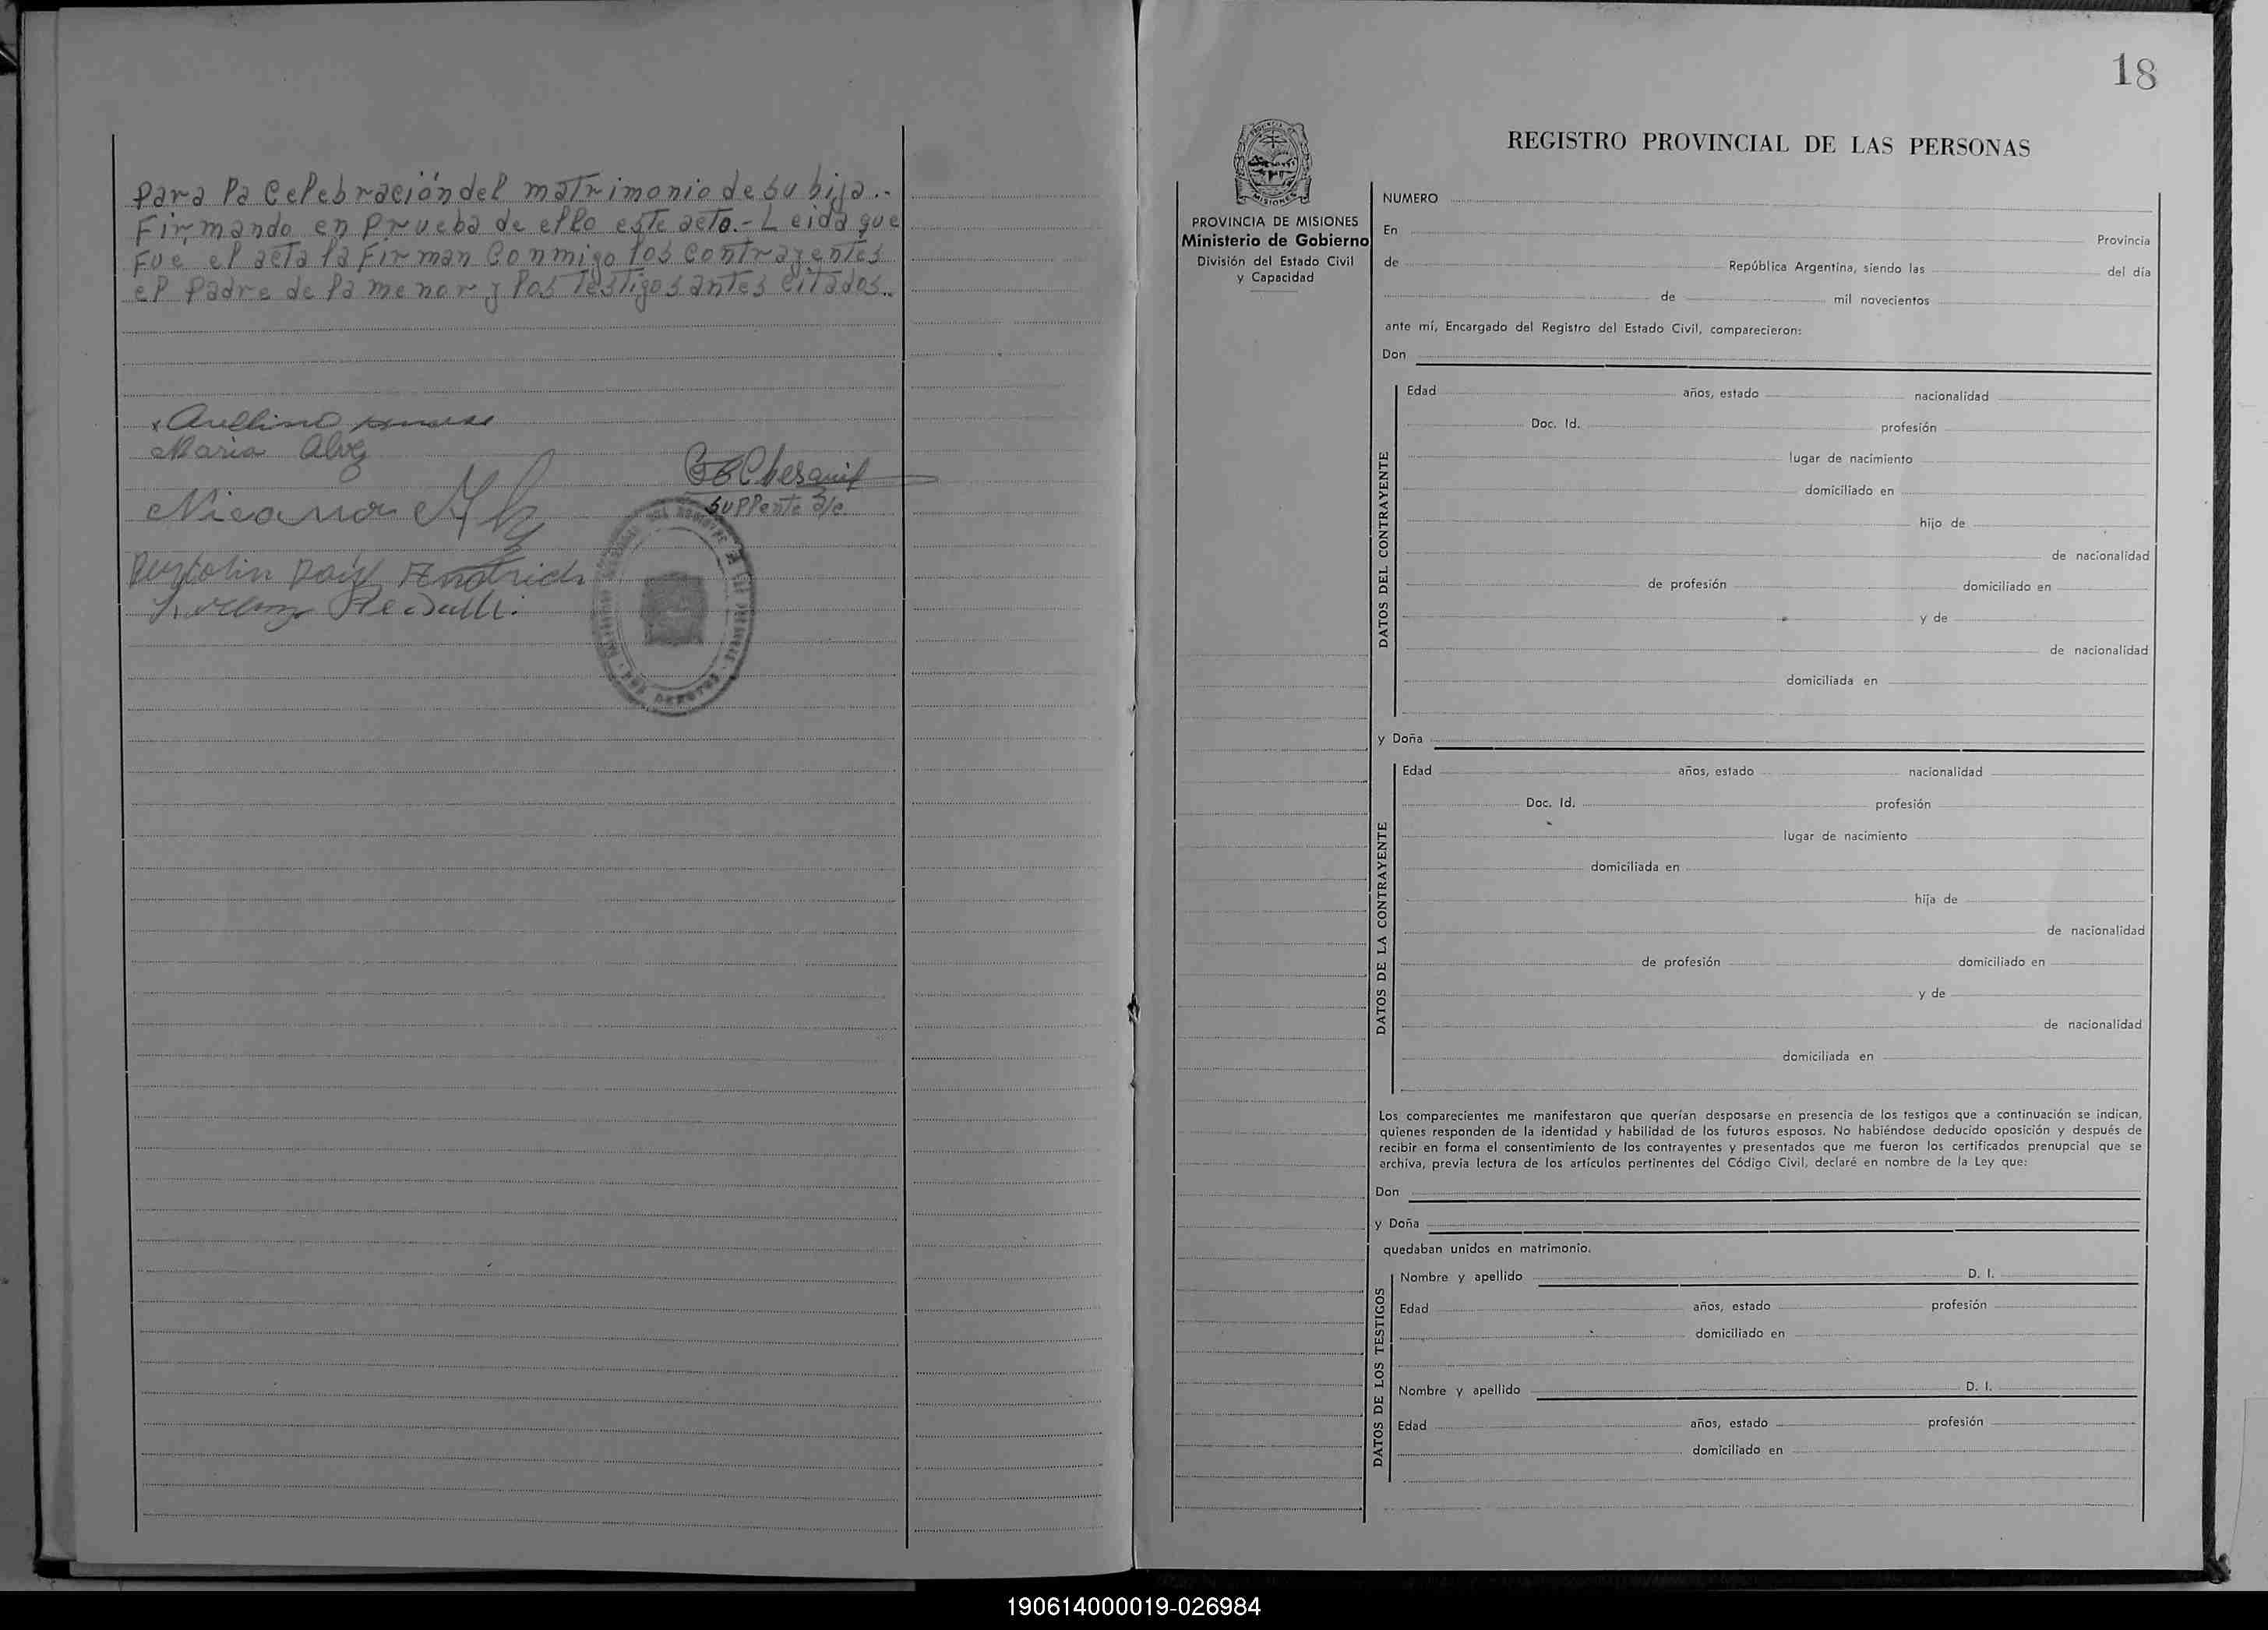 Para la Celebración del matrimonio de su hija.-
Firmando en Prueba de ello este acto.- Leida que
Fue el acta la Firman Conmigo los contrayentes
el Padre de la menor y los Testigos antes citados.-
Avellino
Maria Alvez
Nicanor
Suplente a/c
18
REGISTRO PROVINCIAL DE LAS PERSONAS
PROVINCIA DE MISIONES
Ministerio de Gobierno
División del Estado Civil
y Capacidad
NUMERO
En Provincia
de República Argentina, siendo las del día
de mil novecientos
ante mí, Encargado del Registro del Estado Civil, comparecieron:
Don
DATOS DEL CONTRAYENTE
Edad años, estado nacionalidad
Doc. Id. profesión
lugar de nacimiento
domiciliado en
hijo de
de nacionalidad
de profesión domiciliado en
y de
de nacionalidad
domiciliada en
y Doña
DATOS DE LA CONTRAYENTE
Edad años, estado nacionalidad
Doc. Id. profesión
lugar de nacimiento
domiciliada en
hija de
de nacionalidad
de profesión domiciliado en
y de
de nacionalidad
domiciliada en
Los comparecientes me manifestaron que querían desposarse en presencia de los testigos que a continuación se indican,
quienes responden de la identidad y habilidad de los futuros esposos. No habiéndose deducido oposición y después de
recibir en forma el consentimiento de los contrayentes y presentados que me fueron los certificados prenupcial que se
archiva, previa lectura de los artículos pertinentes del Código Civil, declaré en nombre de la Ley que:
Don
y Doña
quedaban unidos en matrimonio.
DATOS DE LOS TESTIGOS
Nombre y apellido D. I.
Edad años, estado profesión
domiciliado en
Nombre y apellido D. I.
Edad años, estado profesión
domiciliado en
190614000019-026984